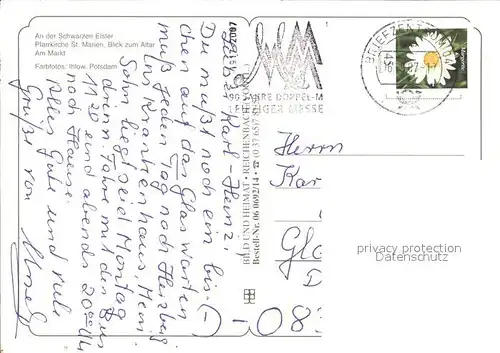 An der Schwarzen Elster
Pfarrkirche St. Marien, Blick zum Altar
Am Markt
Farbfotos: Ihlow, Potsdam
15.12.2007
Karl-Heinz!
Du mußt noch ein bis-
chen auf das Glas warten,
muß jeden Tag nach Herzberg
ins Krankenhaus. Mein
Sohn liegt seid Montag
drinn. Fahre mit den Bus
11 20 und abends 20
nach Hause.
Alles Gute und
Grüße von
BILD UND HEIMAT · REICHENBACH
Bestell-Nr. 06 0692/14 · ☎ (0 37 65)
90 JAHRE DOPPEL-M
LEIPZIGER MESSE
BRIEFZENTRUM 04
Margerite
Herrn
Kar
Gl
D
-08
privacy protection
Datenschutz